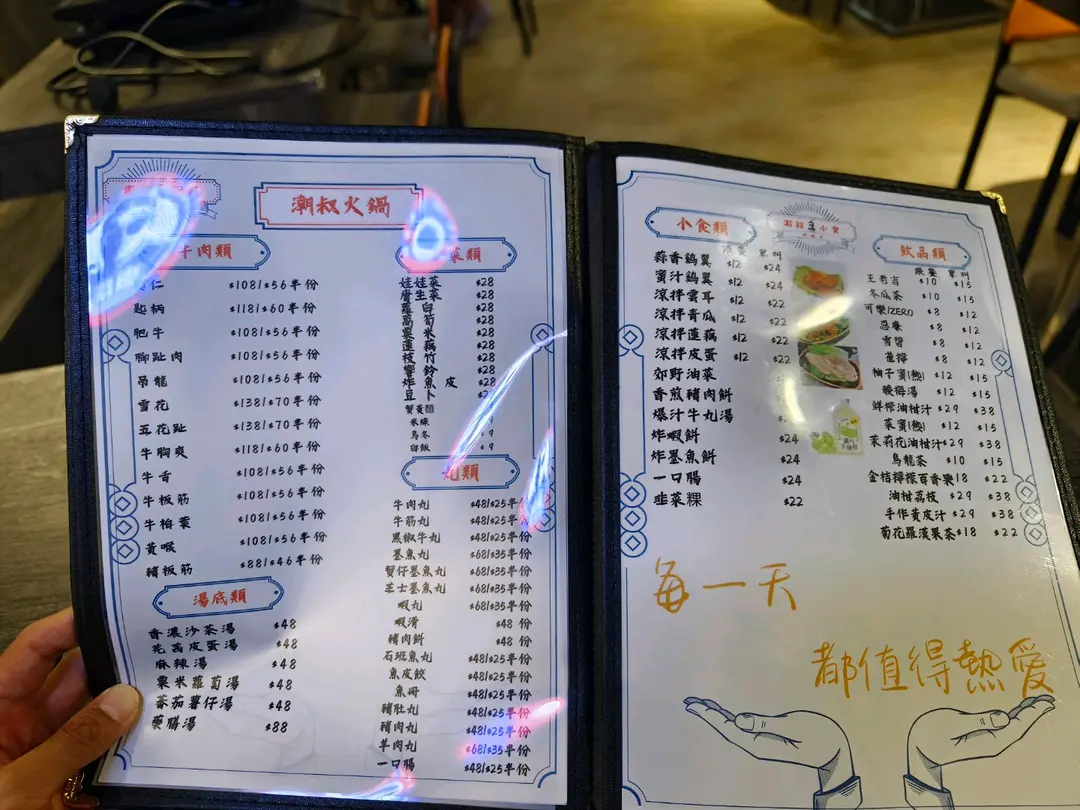 潮叔火鍋
牛肉類
仁 $108/$56半份
匙柄 $118/$60半份
肥牛 $108/$56半份
腳趾肉 $108/$56半份
吊龍 $108/$56半份
雪花 $138/$70半份
五花趾 $138/$70半份
牛胸爽 $118/$60半份
牛舌 $108/$56半份
牛板筋 $108/$56半份
牛柏葉 $108/$56半份
黃喉 $108/$56半份
豬板筋 $88/$46半份
湯底類
香濃沙茶湯 $48
芫茜皮蛋湯 $48
麻辣湯 $48
粟米蘿蔔湯 $48
蕃茄薯仔湯 $48
藥膳湯 $88
菜類
娃菜 $28
生菜 $28
$28
$28
$28
$28
$28
$28
炸魚皮 $28
蟹黃麵
米線 9
烏冬 $9
白飯 $9
丸類
牛肉丸 $48/$25半份
牛筋丸 $48/$25半份
黑椒牛丸 $48/$25半份
墨魚丸 $68/$35半份
蟹仔墨魚丸 $68/$35半份
芝士墨魚丸 $68/$35半份
蝦丸 $68/$35半份
蝦滑 $48 份
豬肉餅 $48 份
石班魚丸 $48/$25半份
魚皮餃 $48/$25半份
魚冊 $48/$25半份
豬肚丸 $48/$25半份
豬肉丸 $48/$25半份
羊肉丸 $68/$35半份
一口腸 $48/$25半份
小食類
跟餐 單叫
蒜香鷄翼 $12 $24
蜜汁鷄翼 $12 $24
涼拌雲耳 $12 $22
涼拌青瓜 $12 $22
涼拌蓮藕 $12 $22
涼拌皮蛋 $12 $22
郊野油菜
香煎豬肉餅
爆汁牛丸湯
炸蝦餅 $24
炸墨魚餅 $24
一口腸 $24
韭菜粿 $22
飲品類
跟餐 單叫
王老吉 $10 $15
冬瓜茶 $10 $15
可樂/ZERO $8 $12
忌廉 $8 $12
雪碧 $8 $12
蜜(熱) $12 $15
酸梅湯 $12 $15
鮮榨油柑汁 $29 $38
菜蜜(熱) $12 $15
茉莉花油柑汁 $29 $38
烏龍茶 $10 $15
金桔檸檬百香果 $18 $22
油柑荔枝 $29 $38
手作黃皮汁 $29 $38
菊花羅漢果茶 $18 $22
每一天
都值得熱愛